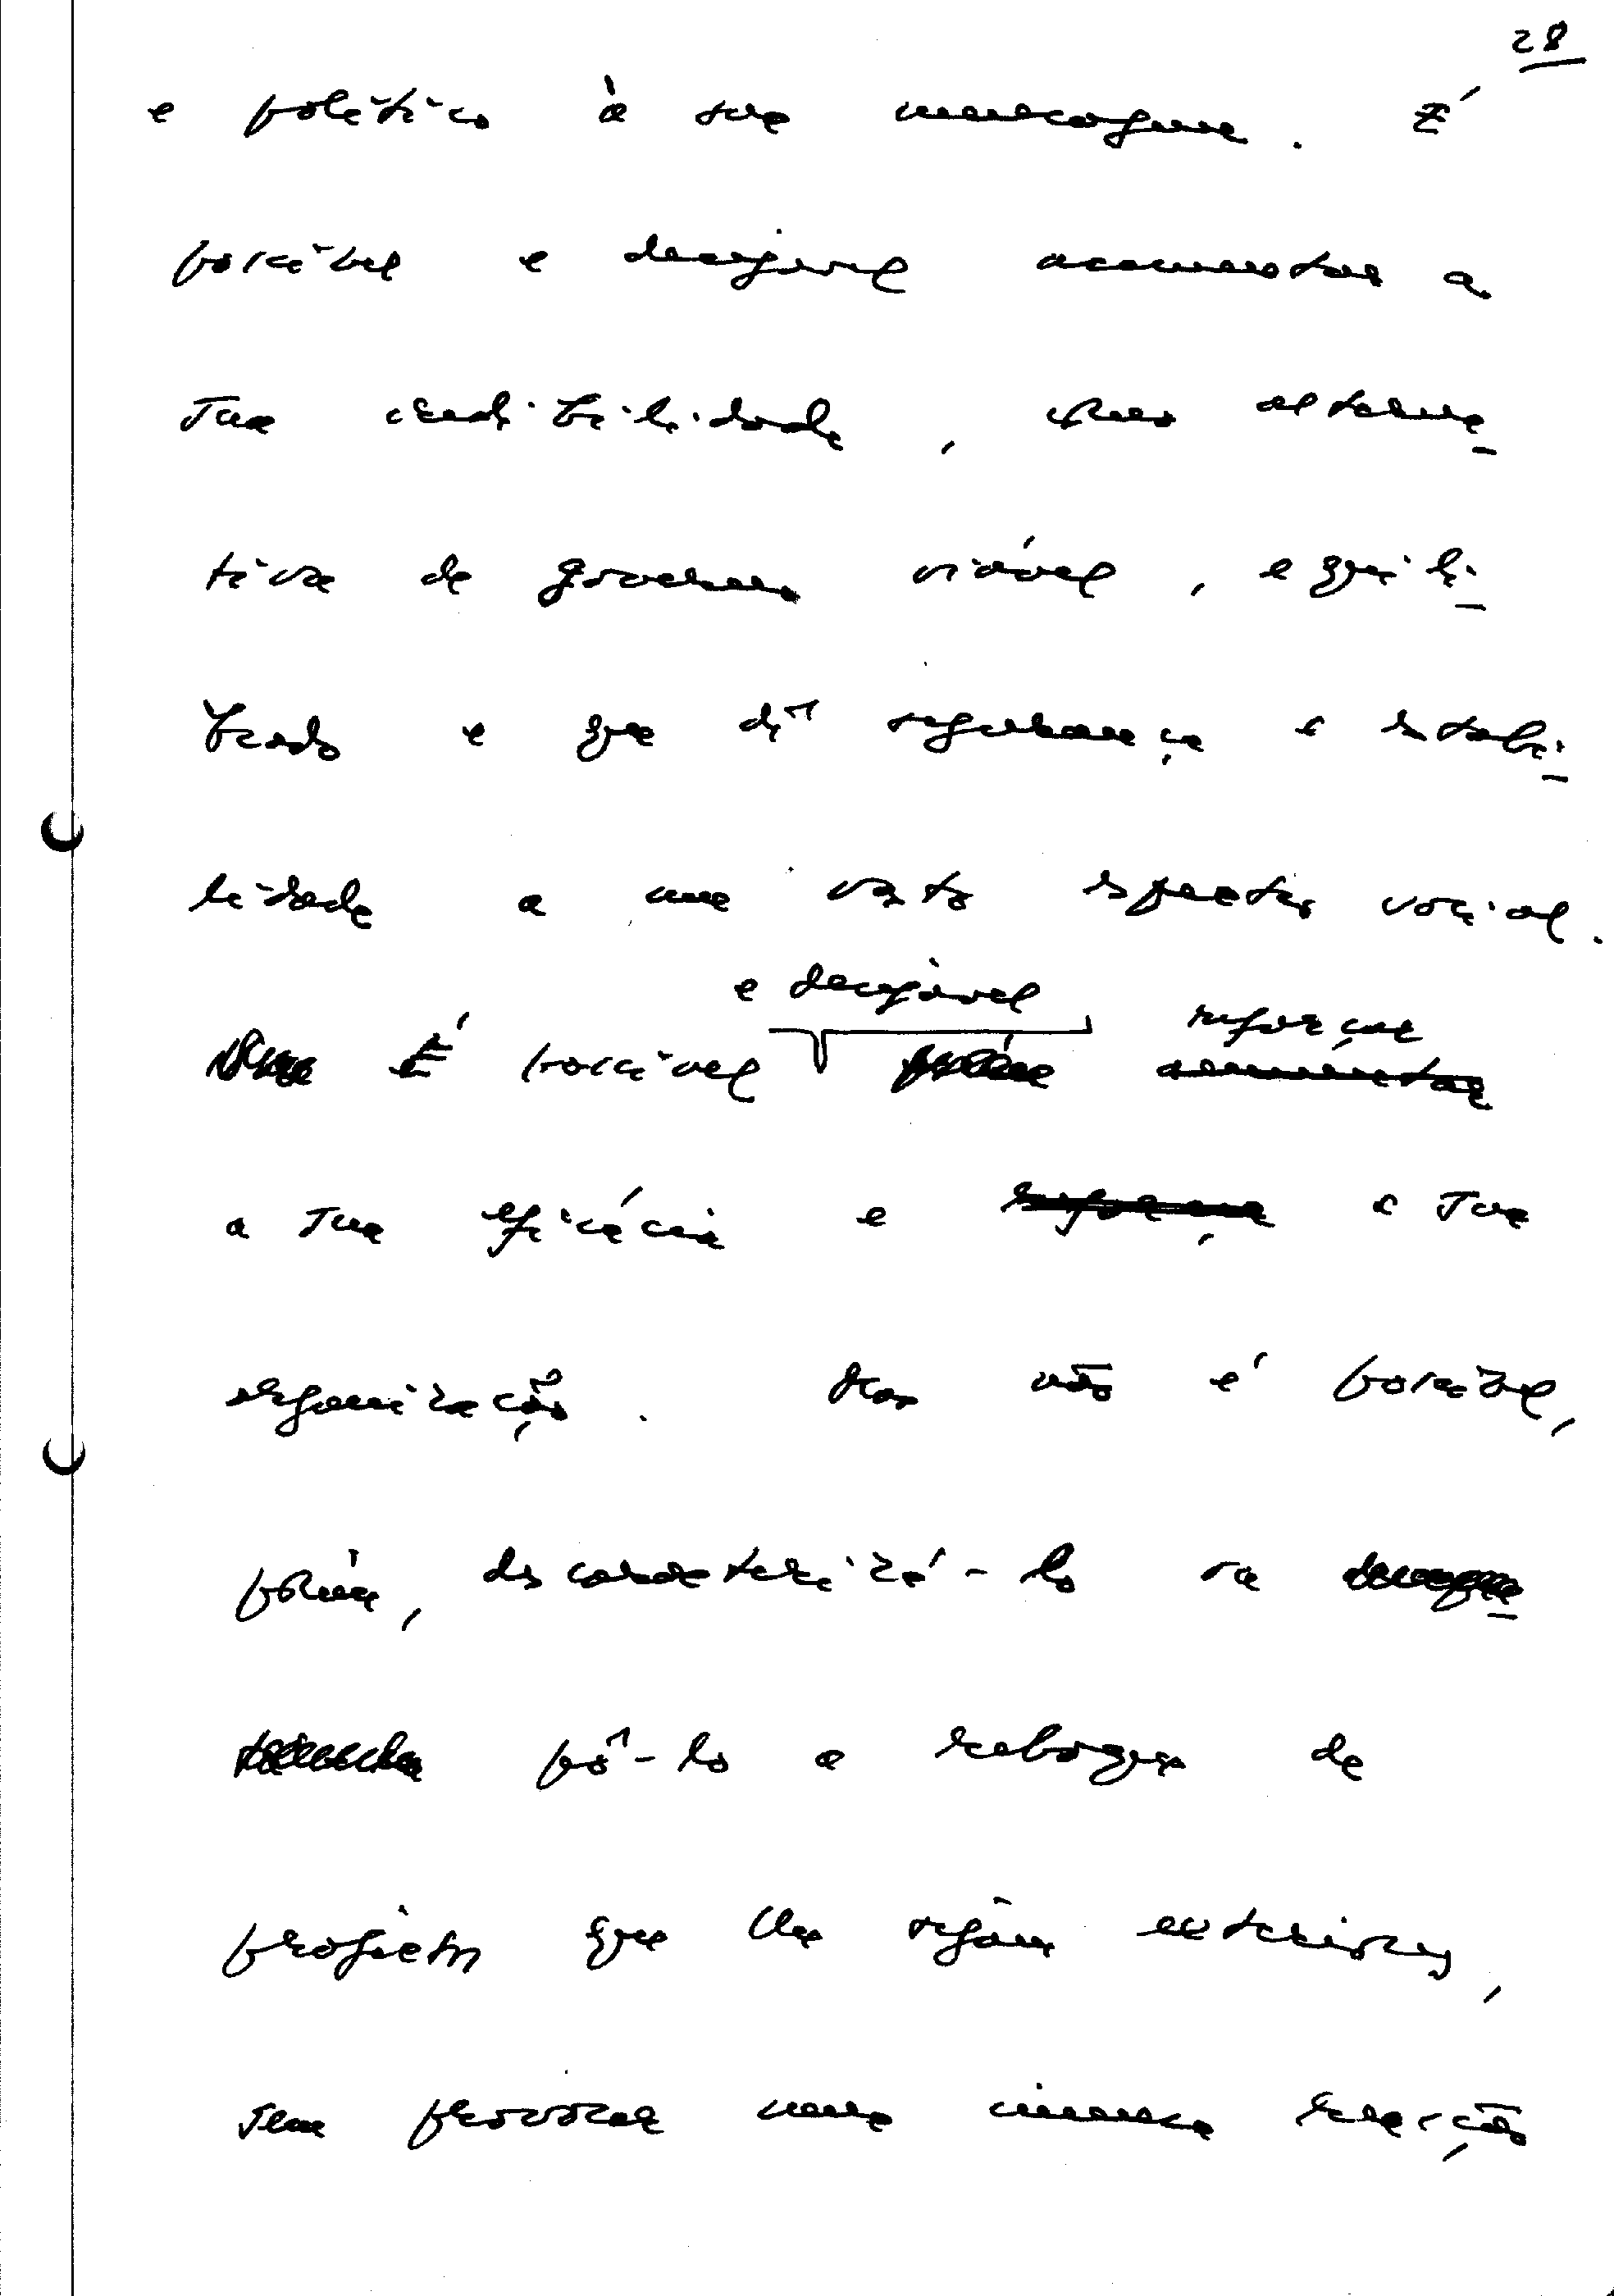 28
e político à sua mensagem. É
possível e desejável acrescentar a
sua credibilidade, como alterna-
tiva de governo viável, equili-
brado e que dê segurança e estabi-
lidade a um vasto espectro social.
e desejável reforçar
É possível
a sua eficácia e a sua
organização. Mas não é possível,
porém, descaracterizá-lo ou
pô-lo a reboque de
projectos que lhe sejam exteriores,
sem provocar uma imensa reacção